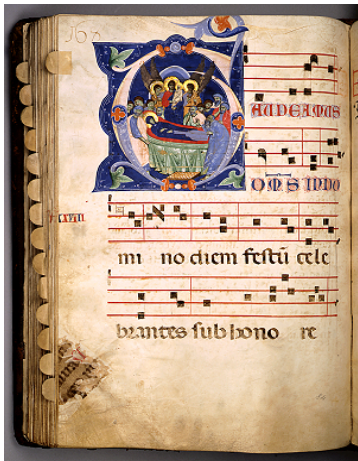 AUDEAMUS
OMS IN DO
mi no diem festū cele
brantes sub hono re